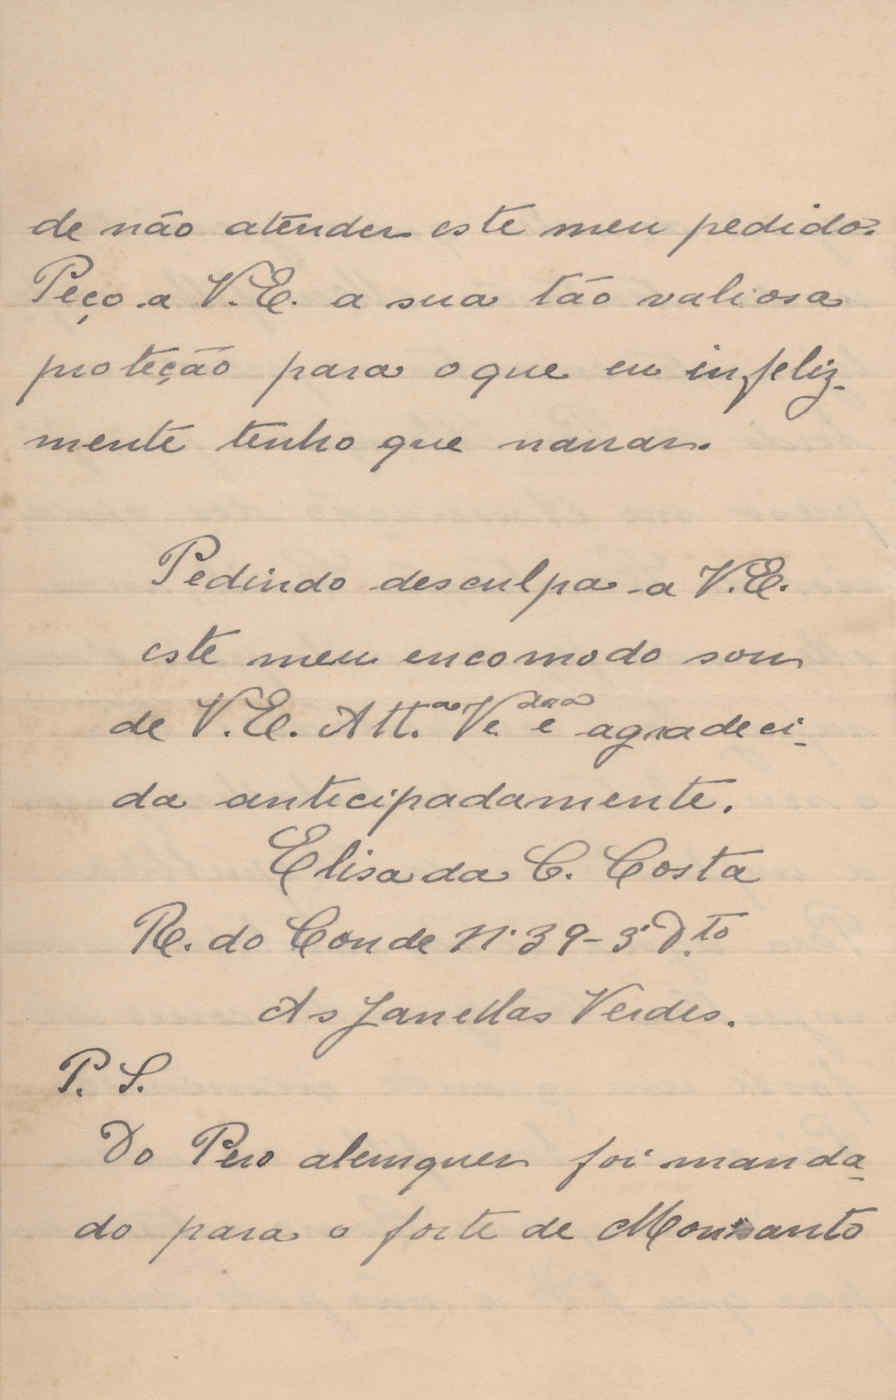 de não atender este meu pedido.
Peço a V.E. a sua tão valiosa
proteção para o que eu infeliz-
mente tenho que narrar.
Pedindo desculpa a V.E.
este meu encomodo sou
de V.E. Att.ª Ve.dora e agradeci-
da anticipadamente.
Elisa da C. Costa
R. do Conde Nº 39-3º D.to
As Janellas Verdes.
P. S.
Do Pero alemquer foi manda-
do para o forte de Monsanto